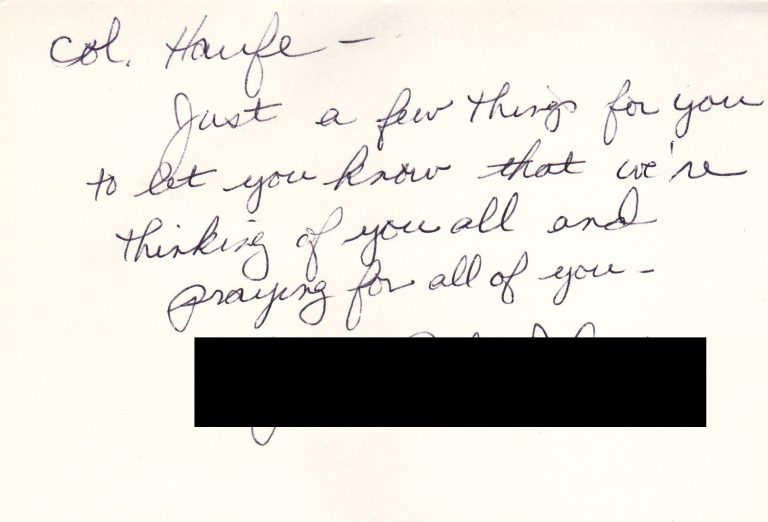 Col. Haufe –
Just a few things for you
to let you know that we're
thinking of you all and
praying for all of you –